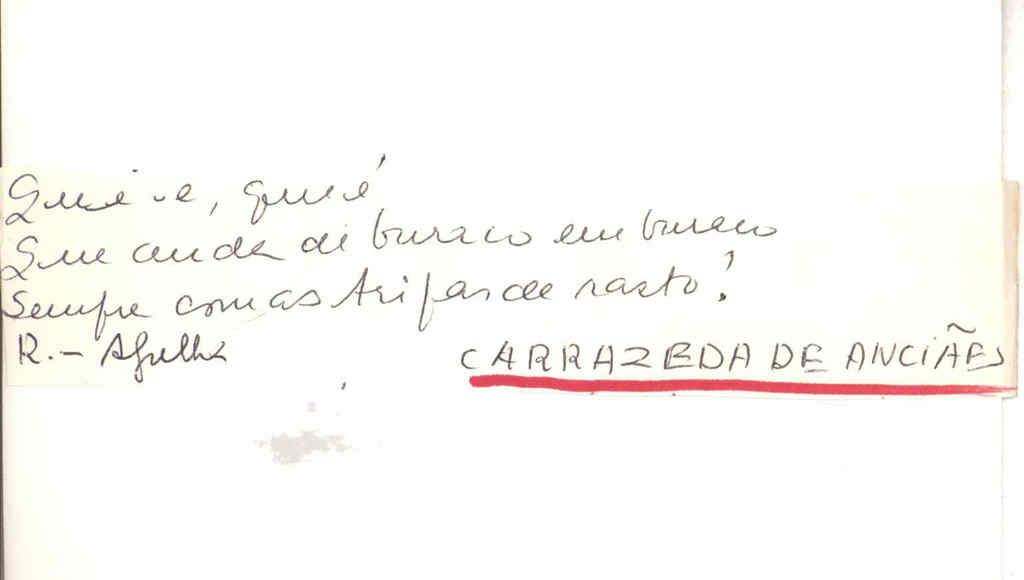 Qui é-e, que é
Que anda de buraco em buraco
Sempre com as tripas de rasto?
R. - Agulha
CARRAZEDA DE ANCIÃES